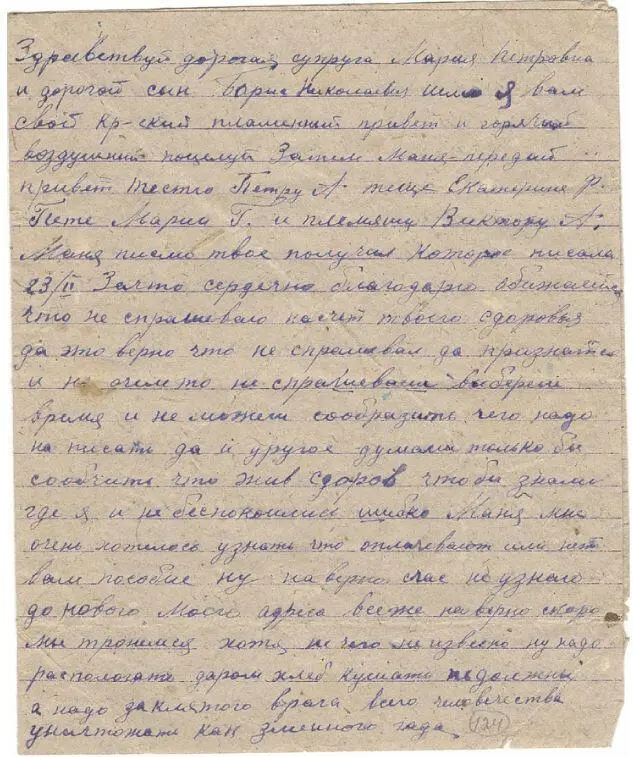 Здравствуй дорогая супруга Мария Петровна
и дорогой сын Борис Николаевич шлю я вам
свой кр-ский пламенний привет и горячий
воздушний поцелуй Затем Маня передай
привет тестю Петру А. теще Екатерине Ф.
Пете Марии Г. и племяшу Виктору А.
Маня писмо твое получил которое писала
23/II Зачто сердечно благодарю обижаешся
что не спрашеваю насчет твоего здоровья
да это верно что не спрашевал да признатся
и не очем то не спрашевали выберем
время и не можем сообразить чего надо
на писать да и другое думали только бы
сообчить что жив сдоров чтобы знали
где я и не беспокоились шибко Маня мне
очень хотелось узнать что оплачевают или нет
вам пособие ну на верно счас не узнаю
до нового моего адреса все же на верно скоро
мы тронемся хотя не чего не извесно ну надо
распологать даром хлеб кушать не должны
а надо заклятого врага всего человечества
уничтожать как змеиного гада.
(124)